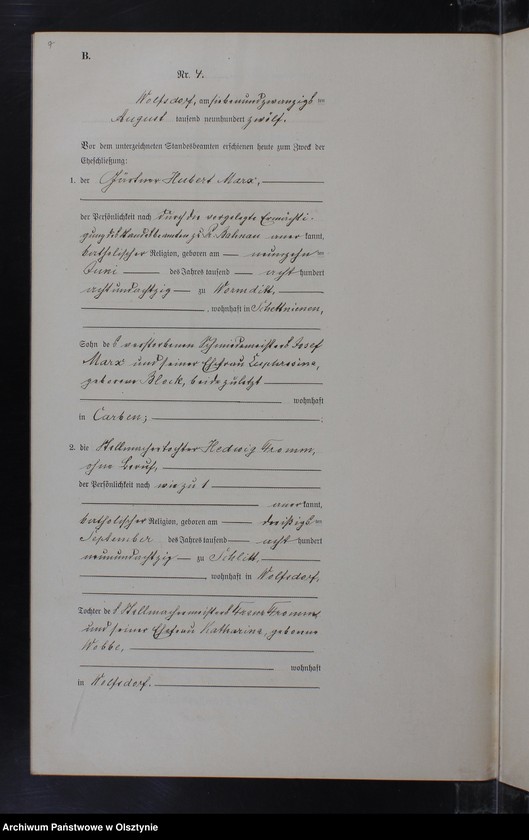 B.
Nr. 4.
Wolfsdorf, am siebenundzwanzigsten
August tausend neunhundert zwölf.
Vor dem unterzeichneten Standesbeamten erschienen heute zum Zweck der
Eheschließung:
1. der Gärtner Hubert Marx,
der Persönlichkeit nach durch die vorgelegte Ermächti-
gung des Standesbeamten zu anerkannt,
katholischer Religion, geboren am neunzehnten
Juni des Jahres tausend acht hundert
achtundachtzig zu Wormditt,
, wohnhaft in Schettnienen,
Sohn des verstorbenen Schmiedemeisters Josef
Marx und seiner Ehefrau Euphrosine,
geborene Block, beide zuletzt
wohnhaft
in Carben;
2. die Stellmachertochter Hedwig Fromm,
ohne Beruf,
der Persönlichkeit nach wie zu 1
anerkannt,
katholischer Religion, geboren am dreißigsten
September des Jahres tausend acht hundert
neunundachtzig zu Schlitt,
, wohnhaft in Wolfsdorf,
Tochter des Stellmachermeisters Franz Fromm
und seiner Ehefrau Katharina, geborene
Wobbe,
wohnhaft
in Wolfsdorf.
Archiwum Państwowe w Olsztynie